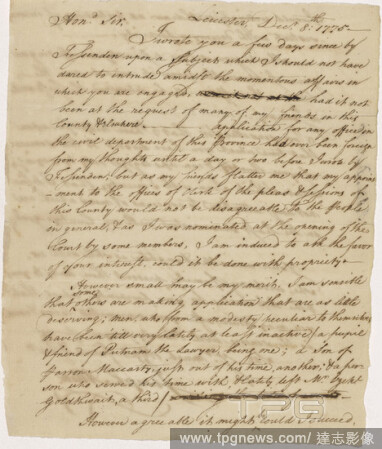 Leicester, Decr. 8th. 1775.
Hond. Sir,
I wrote you a few days since by
Fessenden upon a Subject which I should not have
dared to intrude amidst the momentous affairs in
which you are engaged, had it not
been at the request of many of my friends in this
County & elsewhere. application for any office in
the civil department of this Province had ever been foreign
from my thoughts until a day or two before I wrote by
Fessenden; but as my friends flatter me that my appoint
-ment to the office of Clerk of the pleas & sessions of
this County would not be disagreeable to the People
in general, & as I was nominated at the opening of the
Court by some members, I am induced to ask the favor
of your interest, could it be done with propriety.
However small may be my merit, I am sensible
that some others are making application that are as little
deserving; men, who from a modesty peculiar to themselves
have been till very lately at least inactive / a pupil
& friend of Putnam the Lawyer being one; a Son of
Parson Maccarty, just out of his time, another; & a per
son who served his time with & lately left Mr.
Goldthwait, a third /
However agreeable it might be, could I succeed,
TPG
www.tpgnews.com / 達志影像